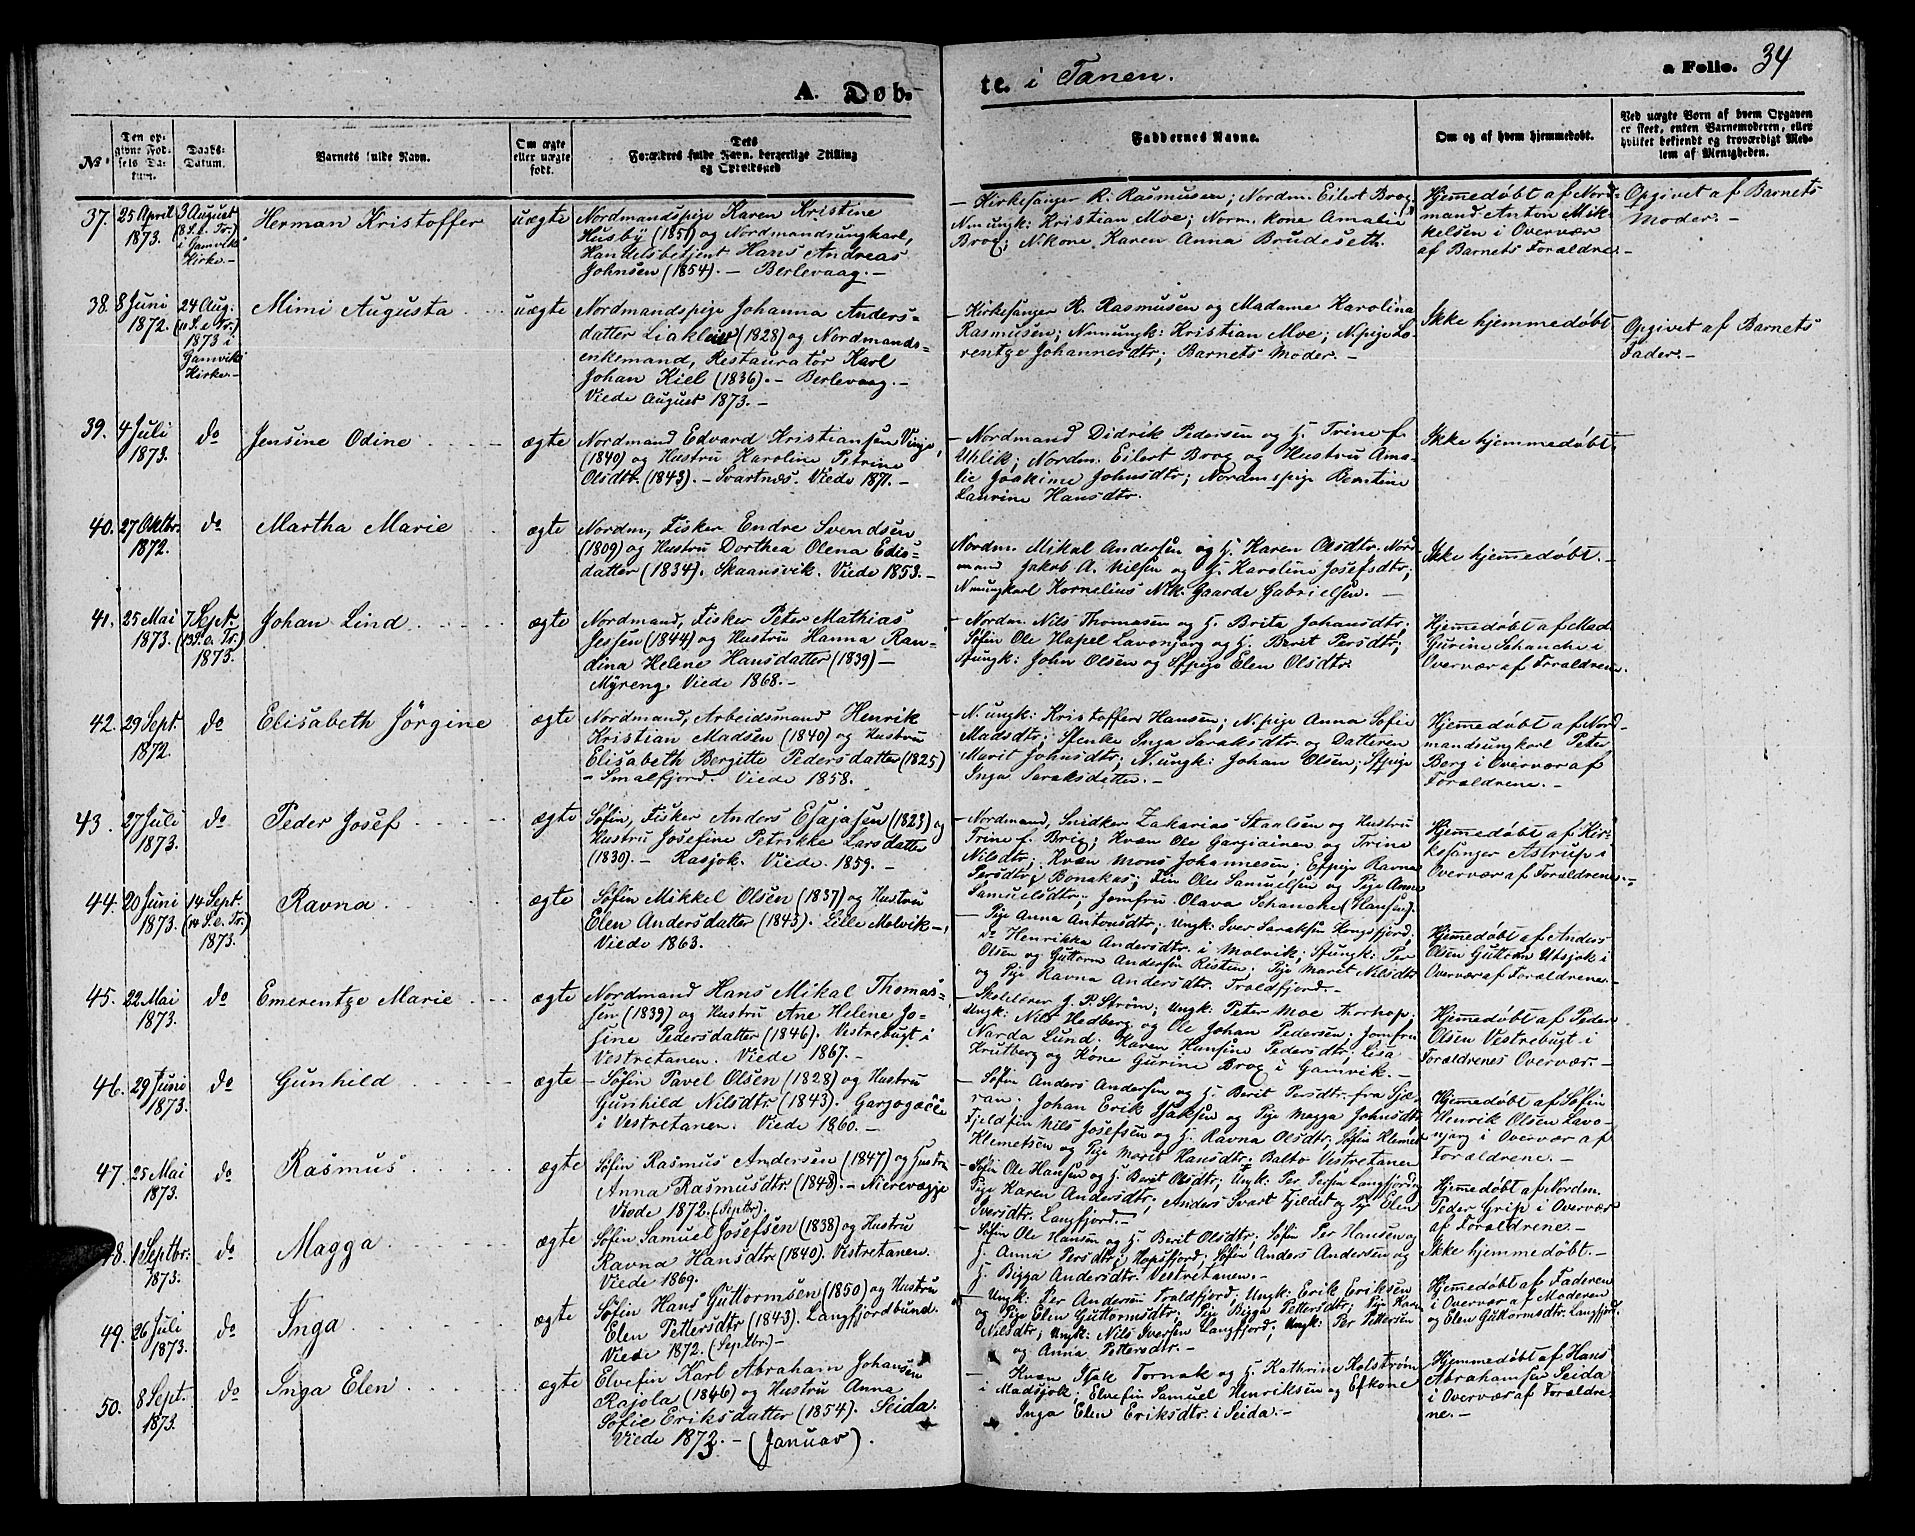 A. Døb-
te. i Tanen.
a Folio. 34
No
Den op-
givne Fød-
sels Da-
tum.
Daabs-
Datum.
Barnets fulde Navn.
Om ægte
eller uægte
født.
Dets
Forældres fulde Navn, borgerlige Stilling
og Opholdssted
Faddernes Navne.
Om og af hvem hjemmedøbt.
Ved uægte Børn af hvem Opgaven
er skeet, enten Barnemoderen, eller
hvilket bekjendt og troværdigt Med-
lem af Menigheden.
37.
25 April
1873.
3 August
(8 S. e. Tr.)
i Gamvik
Kirke.-
Herman Kristoffer
uægte
Nordmandspige Karen Kristine
Husby (1851) og Nordmandsungkarl,
Handelsbetjent Hans Andreas
Johnsen (1854). - Berlevaag. -
- Kirkesanger R. Rasmusen; Nordm. Eilert Brog
Nmungk: Kristian Moe; Norm. kone Amalie
Brog; N.kone Karen Anna Brudeseth.
Hjemmedøbt af Nord-
mand Anton Mik-
kelsen i Overvær
af Barnets Forældre.
Opgivet af Barnets
Moder. -
38.
8 Juni
1872.
24 Aug.
(11 S. e. Tr.)
1873 i
Gamvik
Kirke.-
Mimi Augusta
uægte
Nordmandspige Johanna Anders-
datter Liakleiv (1828) og Nordmands-
enkemand, Restauratør Karl
Johan Kiel (1836). - Berlevaag. -
Viede August 1873. -
- Kirkesanger R. Rasmusen og Madame Karolina
Rasmusen; Nmungk: Kristian Moe; N.pige Lo-
rentze Johannesdtr; Barnets Moder. -
Ikke hjemmedøbt
Opgivet af Barnets
Fader. -
39.
4 Juli
1873.
do
Jensine Odine
ægte
Nordmand Edvard Kristiansen Vinje,
(1840) og Hustru Karoline Petrine
Olsdtr. (1843). - Svartnes. Viede 1871. -
- Nordmand Didrik Pedersen og H. Trine f.
Uhlik; Nordm. Eilert Brog og Hustru Ama-
lie Joakime Johnsdtr; Nordmspige Berntine
Laurine Hansdtr.
Ikke hjemmedøbt
40.
27 Oktbr.
1872.
do
Martha Marie
ægte
Nordm, Fisker Endre Svendsen
(1809) og Hustru Dorthea Olena Edis-
datter (1834). Skaansvik. Viede 1853. -
Nordm. Mikal Andersen og H. Karen Olsdtr. Nord-
mand Jakob A. Nilsen og H. Karoline Josefsdtr;
Nmungkarl Kornelius Nik. Gaarde Gabrielsen. -
Ikke hjemmedøbt. -
41.
25 Mai
1873.
7 Sept.
(13 S. e. Tr.)
1873.
Johan Lind
ægte
Nordmand, Fisker Peter Mathias
Jessen (1844) og Hustru Hanna Ran-
dina Helene Hansdatter (1839) -
Myreng. Viede 1868. -
- Nordm. Nils Thomasen og H. Brita Johansdtr;
Søfin Ole Hapel Lavonjarg og H. Berit Persdtr;
Sfungk: John Olsen og Sfpige Elen Olsdtr.
Hjemmedøbt af Mad.
Gurine Schanche i
Overvær af Forældrene.
42.
29 Sept.
1872.
do
Elisabeth Jörgine
ægte
Nordmand, Arbeidsmand Henrik
Kristian Madsen (1840) og Hustru
Elisabeth Bergitte Pedersdatter (1825)
- Smalfjord. Viede 1858.
- N. ungk: Kristoffer Hansen; N. pige Anna Sofie
Madsdtr; Sfenke Inga Saraksdtr. og Datteren
Marit Johnsdtr; N. ungk: Johan Olsen; Sfpige
Inga Saraksdatter. -
Hjemmedøbt af Nord-
mandsungkarl Peter
Berg i Overvær af
Forældrene. -
43.
27 Juli
1873.
do
Peder Josef
ægte
Søfin, Fisker Anders Esajasen (1823) og
Hustru Josefine Petrikke Larsdatter
(1830). - Rasjok. Viede 1859. -
- Nordmand, Snidker Zakarias Staalsen og Hustru
Trine f. Brig; Kvæn Ole Gargiainen og Trine
Nilsdtr; Kvæn Mons Johannesen; Efpige Ravna
Persdtr Bonakas; Fin Ole Samuelsen og Pige Anna
Samuelsdtr; Jomfru Olava Schanche (Hansen).
Hjemmedøbt af Kir-
kesanger Astrup i
Overvær af Forældrene. -
44.
20 Juni
1873.
14 Sept.
(14 S. e. Tr.)
1873.
Ravna
ægte
Søfin Mikkel Olsen (1837) og Hustru
Elen Andersdatter (1843). Lille Molvik -
Viede 1863.
- Pige Anna Antonsdtr; Ungk: Iver Saraksen Kongsfjord;
do Henrikka Andersdtr. i Molvik; Sfungk: Per
Olsen og Guttorm Andersen Risten; Pige Marit Nilsdtr
og Pige Ravna Andersdtr. Troldfjord. -
Hjemmedøbt af Anders
Olsen Guttorm Utsjok i
Overvær af Forældrene. -
45.
22 Mai
1873.
do
Emerentze Marie
ægte
Nordmand Hans Mikal Thomas-
sen (1839) og Hustru Ane Helene Jo-
sine Pedersdatter (1846). Vestrebugt i
Vestretanen. Viede 1867. -
- Skolelærer J. P. Strøm; Ungk: Peter Moe Torhop;
Ungk: Nils Hedberg og Ole Johan Pedersen; Jomfru
Narda Lund. Karen Hansine Pedersdtr; Lisa
Krutberg og Kone Gurine Brog i Gamvik. -
Hjemmedøbt af Peder
Olsen Vestrebugt i
Forældrenes Overvær. -
46.
29 Juni
1873.
do
Gunhild
ægte
- Søfin Pavel Olsen (1828) og Hustru
Gunhild Nilsdtr (1843). Gargogæčče
i Vestretanen. Viede 1860. -
- Søfin Anders Andersen og H. Berit Persdtr. fra Sjæ-
ran; Johan Erik Isaksen og Pige Magga Johnsdtr,
Fjeldfin Nils Josefsen og H. Ravna Olsdtr; Søfin Klemet
Klemetsen og Pige Marit Hansdtr. Balto Vestretanen
Hjemmedøbt af Søfin
Henrik Olsen Lavo-
njarg i Overvær af
Forældrene. -
47.
25 Mai
1873.
do
Rasmus
ægte
Søfin Rasmus Andersen (1847) og Hustru
Anna Rasmusdtr (1848). - Nierevagge
Viede 1872. (Septbr).
- Søfin Ole Hansen og H. Berit Olsdtr; Ungk: Per Persen Langfjord;
Pige Karen Andersdtr; Anders Svart Fjeldet og Pige Elen
Iversdtr. Langfjord. -
Hjemmedøbt af Nordm.
Peder Grip i Overvær
af Forældrene. -
48.
1 Septbr.
1873.
do
Magga
ægte
Søfin Samuel Josefsen (1838) og Hustru
Ravna Hansdtr (1840). Vestretanen.
Viede 1869.
- Søfin Ole Hansen og H. Berit Olsdtr; Søfin Per Hansen og
H. Anna Persdtr; Hopsfjord; Søfin Anders Andersen og
H. Bigga Andersdtr. Vestretanen. -
Ikke hjemmedøbt. -
49.
26 Juli
1873.
do
Inga
ægte
Søfin Hans Guttormsen (1850) og Hustru
Elen Pettersdtr (1843). Langfjordbund.
Viede 1872. (Septbr) -
- Ungk: Per Andersen Troldfjord. Ungk: Erik Eriksen
og Pige Elen Guttormsdtr; Pige Bigga Pettersdtr; Pige Karen
Nilsdtr; Ungk: Nils Iversen Langfjord; Ungk: Per Pettersen
og Anna Pettersdtr. -
Hjemmedøbt af Faderen
i Overvær af Moderen
og Elen Guttormsdtr. Langfjord.
50.
8 Sept.
1873.
do
Inga Elen
ægte
Elvefin Karl Abraham Johansen
Rajola (1846) og Hustru Anna
Sofie Eriksdatter (1854). Seida.
Viede 1872. - (Januar).
- Kvæn Isak Tornak og H. Kathrine Kolstrøm
i Madsjok; Elvefin Samuel Henriksen og Efkone
Inga Elen Eriksdtr. i Seida. -
Hjemmedøbt af Hans
Abrahamsen Seida
i Overvær af Forældre-
ne. -